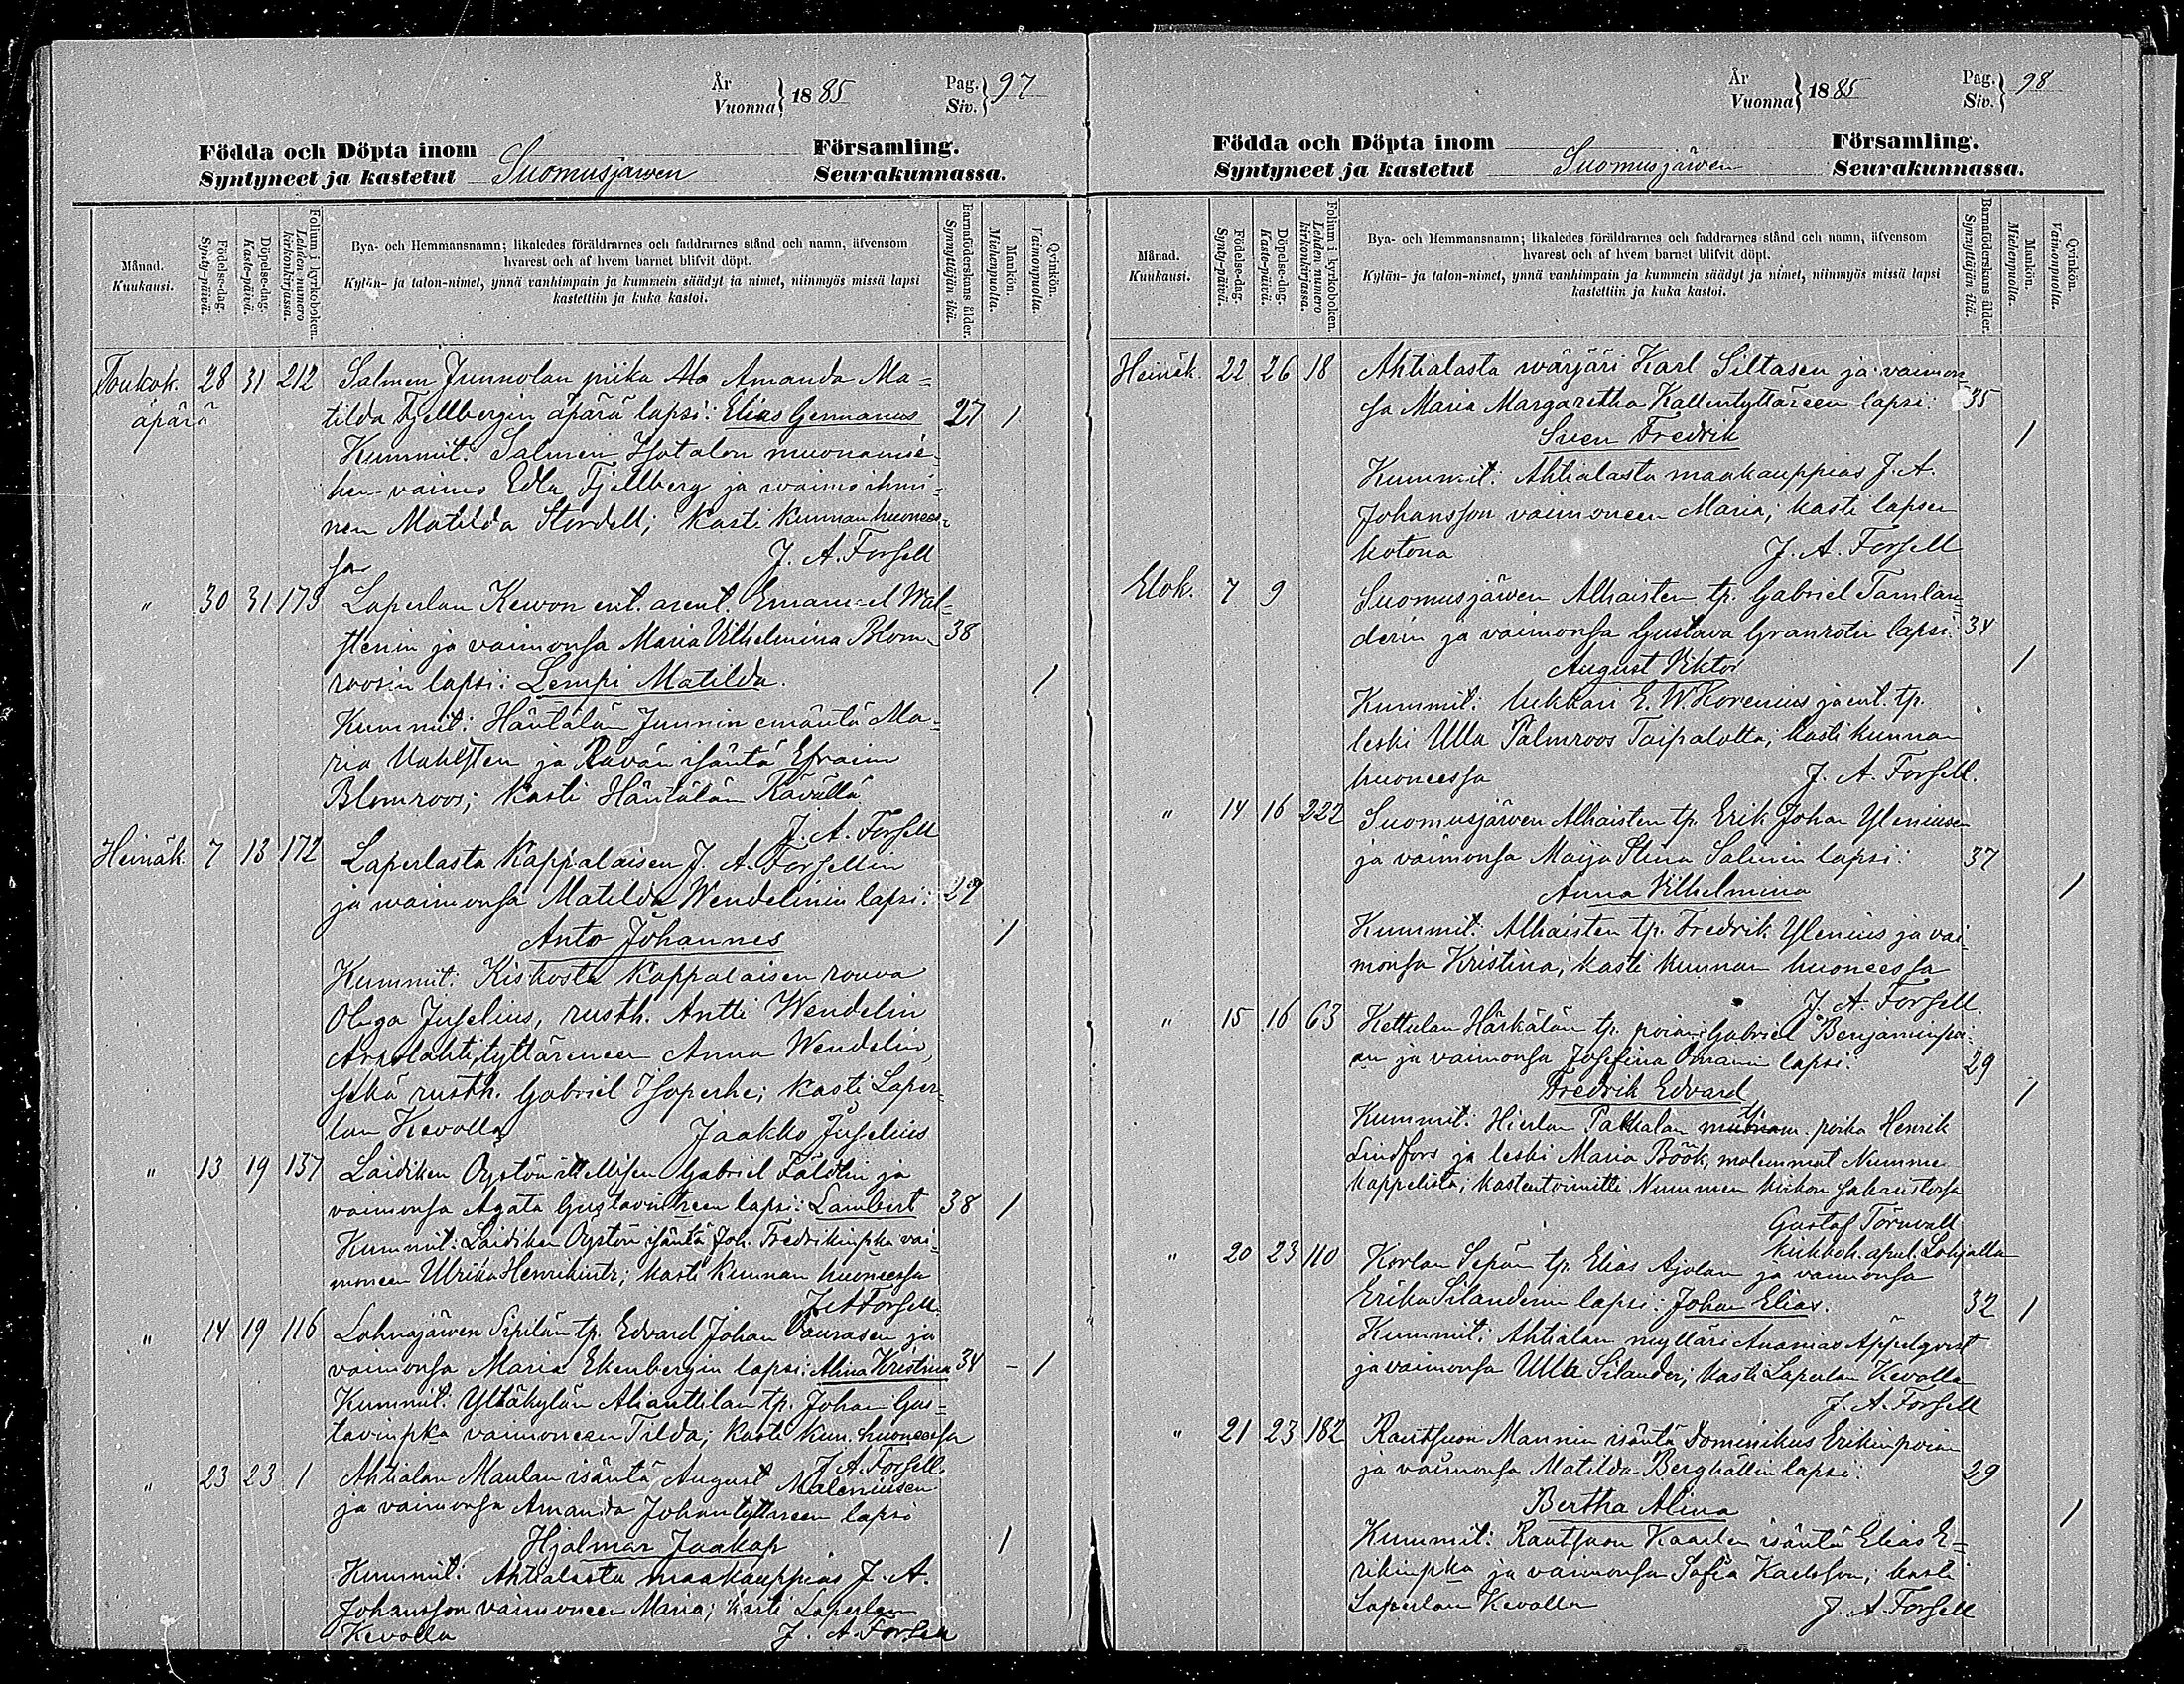 År
Vuonna } 1885
Pag.
Siv. } 97
Födda och Döpta inom Församling.
Syntyneet ja kastetut Suomusjärwen Seurakunnassa.
Månad.
Kuukausi.
Födelse-dag.
Synty-päivä.
Döpelse-dag.
Kaste-päivä.
Folium i kyrkoboken.
Lehden numero kirkonkirjassa.
Bya- och Hemmansnamn; likaledes föräldrarnes och faddrarnes stånd och namn, äfvensom
hvarest och af hvem barnet blifvit döpt.
Kylän- ja talon-nimet, ynnä vanhimpain ja kummein säädyt ja nimet, niinmyös missä lapsi
kastettiin ja kuka kastoi.
Barnaföderskans ålder.
Synnyttäjän ikä.
Mankön.
Miehenpuolia.
Qvinkön.
Vaimonpuolia.
Toukok. 28 31 212 Salmen Junnolan piika Amanda Ma=
äpärä tilda Fjellbergin äpärä lapsi: Elias Germanus 27 1
Kummit: Salmen Isotalon muonamie-
hen vaimo Edla Fjellberg ja waimo ihmi-
nen Matilda Stordell; kasti Kunnan huonees-
sa J. A. Forsell
" 30 31 179 Laperlan Kewon ent. arent. Emanuel Wal-
stenin ja vaimonsa Maria Vilhelmina Blom- 38
roosin lapsi: Lempi Matilda. 1
Kummit: Häntälän Junnin emäntä Ma-
ria Vahlsten ja Rävän isäntä Efraim
Blomroos; kasti Häntälän Rävällä
J. A. Forsell
Heinäk. 7 13 172 Laperlasta Kappalaisen J. A. Forsellin
ja waimonsa Matilda Wendelinin lapsi: 29
Anto Johannes 1
Kummit: Kiskosta Kappalaisen rouva
Olga Juselius, rusth. Antti Wendelin
tyttärineen Anna Wendelin,
sekä rusth. Gabriel Isoperhe; kasti Laper-
lan Kevolla Jaakko Juselius
" 13 19 137 Laidiken Gabriel Fäldtin ja
vaimonsa Agata lapsi: Lambert 38 1
Kummit: Laidiken isäntä Joh. Fredrikinpka vai-
moneen Ulrika Henrikintr; kasti Kunnan huoneessa
J A Forsell.
" 14 19 116 Lahnajärwen Sipilän tp. Edvard Johan ja
vaimonsa Maria Ekenbergin lapsi: Alina Kristina 34 - 1
Kummit: Yltäkylän tp. Johan Gus=
tavinpka vaimoneen Tilda; kasti Kun. huoneessa
J. A. Forsell.
" 23 23 1 Ahtialan Maulan isäntä August Maleniusen
ja vaimonsa Amanda Johantyttäreen lapsi
Hjalmar Jaakap 1
Kummit: Ahtialasta maakauppias J. A.
Johansson vaimoneen Maria; kasti Laperlan
Kevolla J. A. Forsell
År
Vuonna } 1885
Pag.
Siv. } 98
Födda och Döpta inom Församling.
Syntyneet ja kastetut Suomusjärwen Seurakunnassa.
Månad.
Kuukausi.
Födelse-dag.
Synty-päivä.
Döpelse-dag.
Kaste-päivä.
Folium i kyrkoboken.
Lehden numero kirkonkirjassa.
Bya- och Hemmansnamn; likaledes föräldrarnes och faddrarnes stånd och namn, äfvensom
hvarest och af hvem barnet blifvit döpt.
Kylän- ja talon-nimet, ynnä vanhimpain ja kummein säädyt ja nimet, niinmyös missä lapsi
kastettiin ja kuka kastoi.
Barnaföderskans ålder.
Synnyttäjän ikä.
Mankön.
Miehenpuolia.
Qvinkön.
Vaimonpuolia.
Heinäk. 22 26 18 Ahtialasta wärjäri Karl Siltasen ja vaimon-
sa Maria Margaretha Kallentyttäreen lapsi: 35
Sven Fredrik 1
Kummit: Ahtialasta maakauppias J. A.
Johansson vaimoneen Maria; kasti lapsen
kotona J. A. Forsell
Elok. 7 9 Suomusjärwen Alhaisten tp. Gabriel Tamlan-
derin ja vaimonsa Gustava Granrotin lapsi: 34
August Viktor 1
Kummit: lukkari E. W. Korenius ja ent. tp.
leski Ulla Palmroos Taipalotta; kasti kunnan
huoneessa J. A. Forsell.
" 14 16 222 Suomusjärwen Alhaisten tp. Erik Johan Yleniusen
ja vaimonsa Maija Stina Salmin lapsi: 37
Anna Vilhelmina 1
Kummit: Alhaisten tp. Fredrik Ylenius ja vai-
monsa Kristina; kasti kunnan huoneessa
J. A. Forsell.
" 15 16 63 Kettulan Härkälän tp. Gabriel Benjaminpoi-
an ja vaimonsa Josefina Omanin lapsi: 29
Fredrik Edvard 1
Kummit: Hierlan Pakkalan tp. poika Henrik
Lindfors ja leski Maria Böök, molemmat Nummen
kappelista; kastentoimitti Nummen kirkon sakaristossa
Gustaf Törnvall
kirkkoh. apul. Lohjalla
" 20 23 110 Korlan Sepän tp. Elias Ajolan ja vaimonsa
Erika Silanderin lapsi: Johan Elias. 32 1
Kummit: Ahtialan mylläri Ananias Appelqvist
ja vaimonsa Ulla Silander; kasti Laperlan Kevolla
J. A. Forsell
" 21 23 182 Rautsuon Mannin isäntä Dominikus Erikinpoian
ja vaimonsa Matilda Berghällin lapsi: 29
Bertha Alina 1
Kummit: Rautsuon Kaarlen isäntä Elias E=
rikinpka ja vaimonsa Sofia Karlsson; kasti
Laperlan Kevolla J. A. Forsell